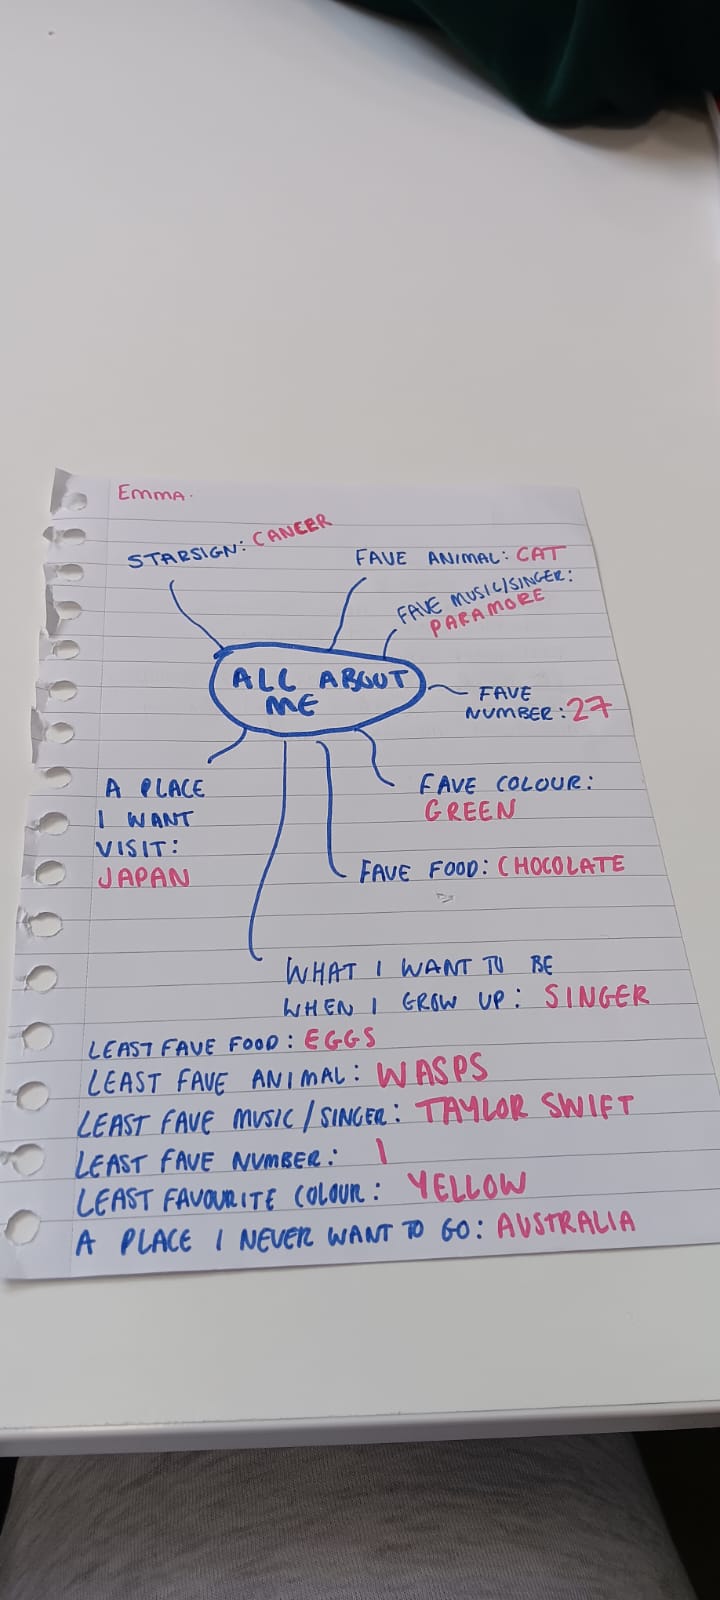 Emma.
STARSIGN: CANCER
FAVE ANIMAL: CAT
FAVE MUSIC/SINGER:
PARAMORE
ALL ABOUT
ME
FAVE
NUMBER: 27
A PLACE
I WANT
VISIT:
JAPAN
FAVE COLOUR:
GREEN
FAVE FOOD: CHOCOLATE
WHAT I WANT TO BE
WHEN I GROW UP: SINGER
LEAST FAVE FOOD: EGGS
LEAST FAVE ANIMAL: WASPS
LEAST FAVE MUSIC/SINGER: TAYLOR SWIFT
LEAST FAVE NUMBER: 1
LEAST FAVOURITE COLOUR: YELLOW
A PLACE I NEVER WANT TO GO: AUSTRALIA